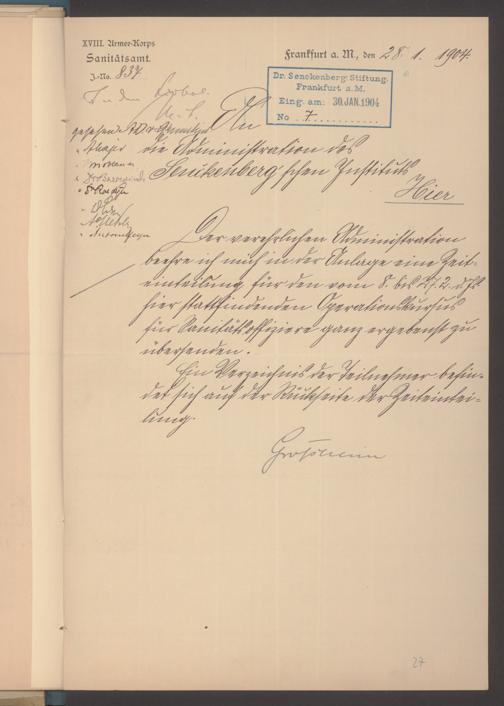 XVIII. Armee-Korps
Sanitätsamt.
J.-No. 837.
Frankfurt a. M., den 28. 1. 1904.
Dr. Senckenberg. Stiftung.
Frankfurt a. M.
Eing. am: 30. JAN. 1904
No 7
An
die Administration des
Senckenberg'schen Instituts
Hier
Der verehrlichen Administration
beehre ich mich in der Anlage eine Zeit-
einteilung für den vom 8. bis 27. 2. d. Js.
hier stattfindenden Operationskursus
für Sanitätsoffiziere ganz ergebenst zu
übersenden.
Ein Verzeichnis der Teilnehmer befin-
det sich auf der Rückseite der Zeiteintei-
lung.
27